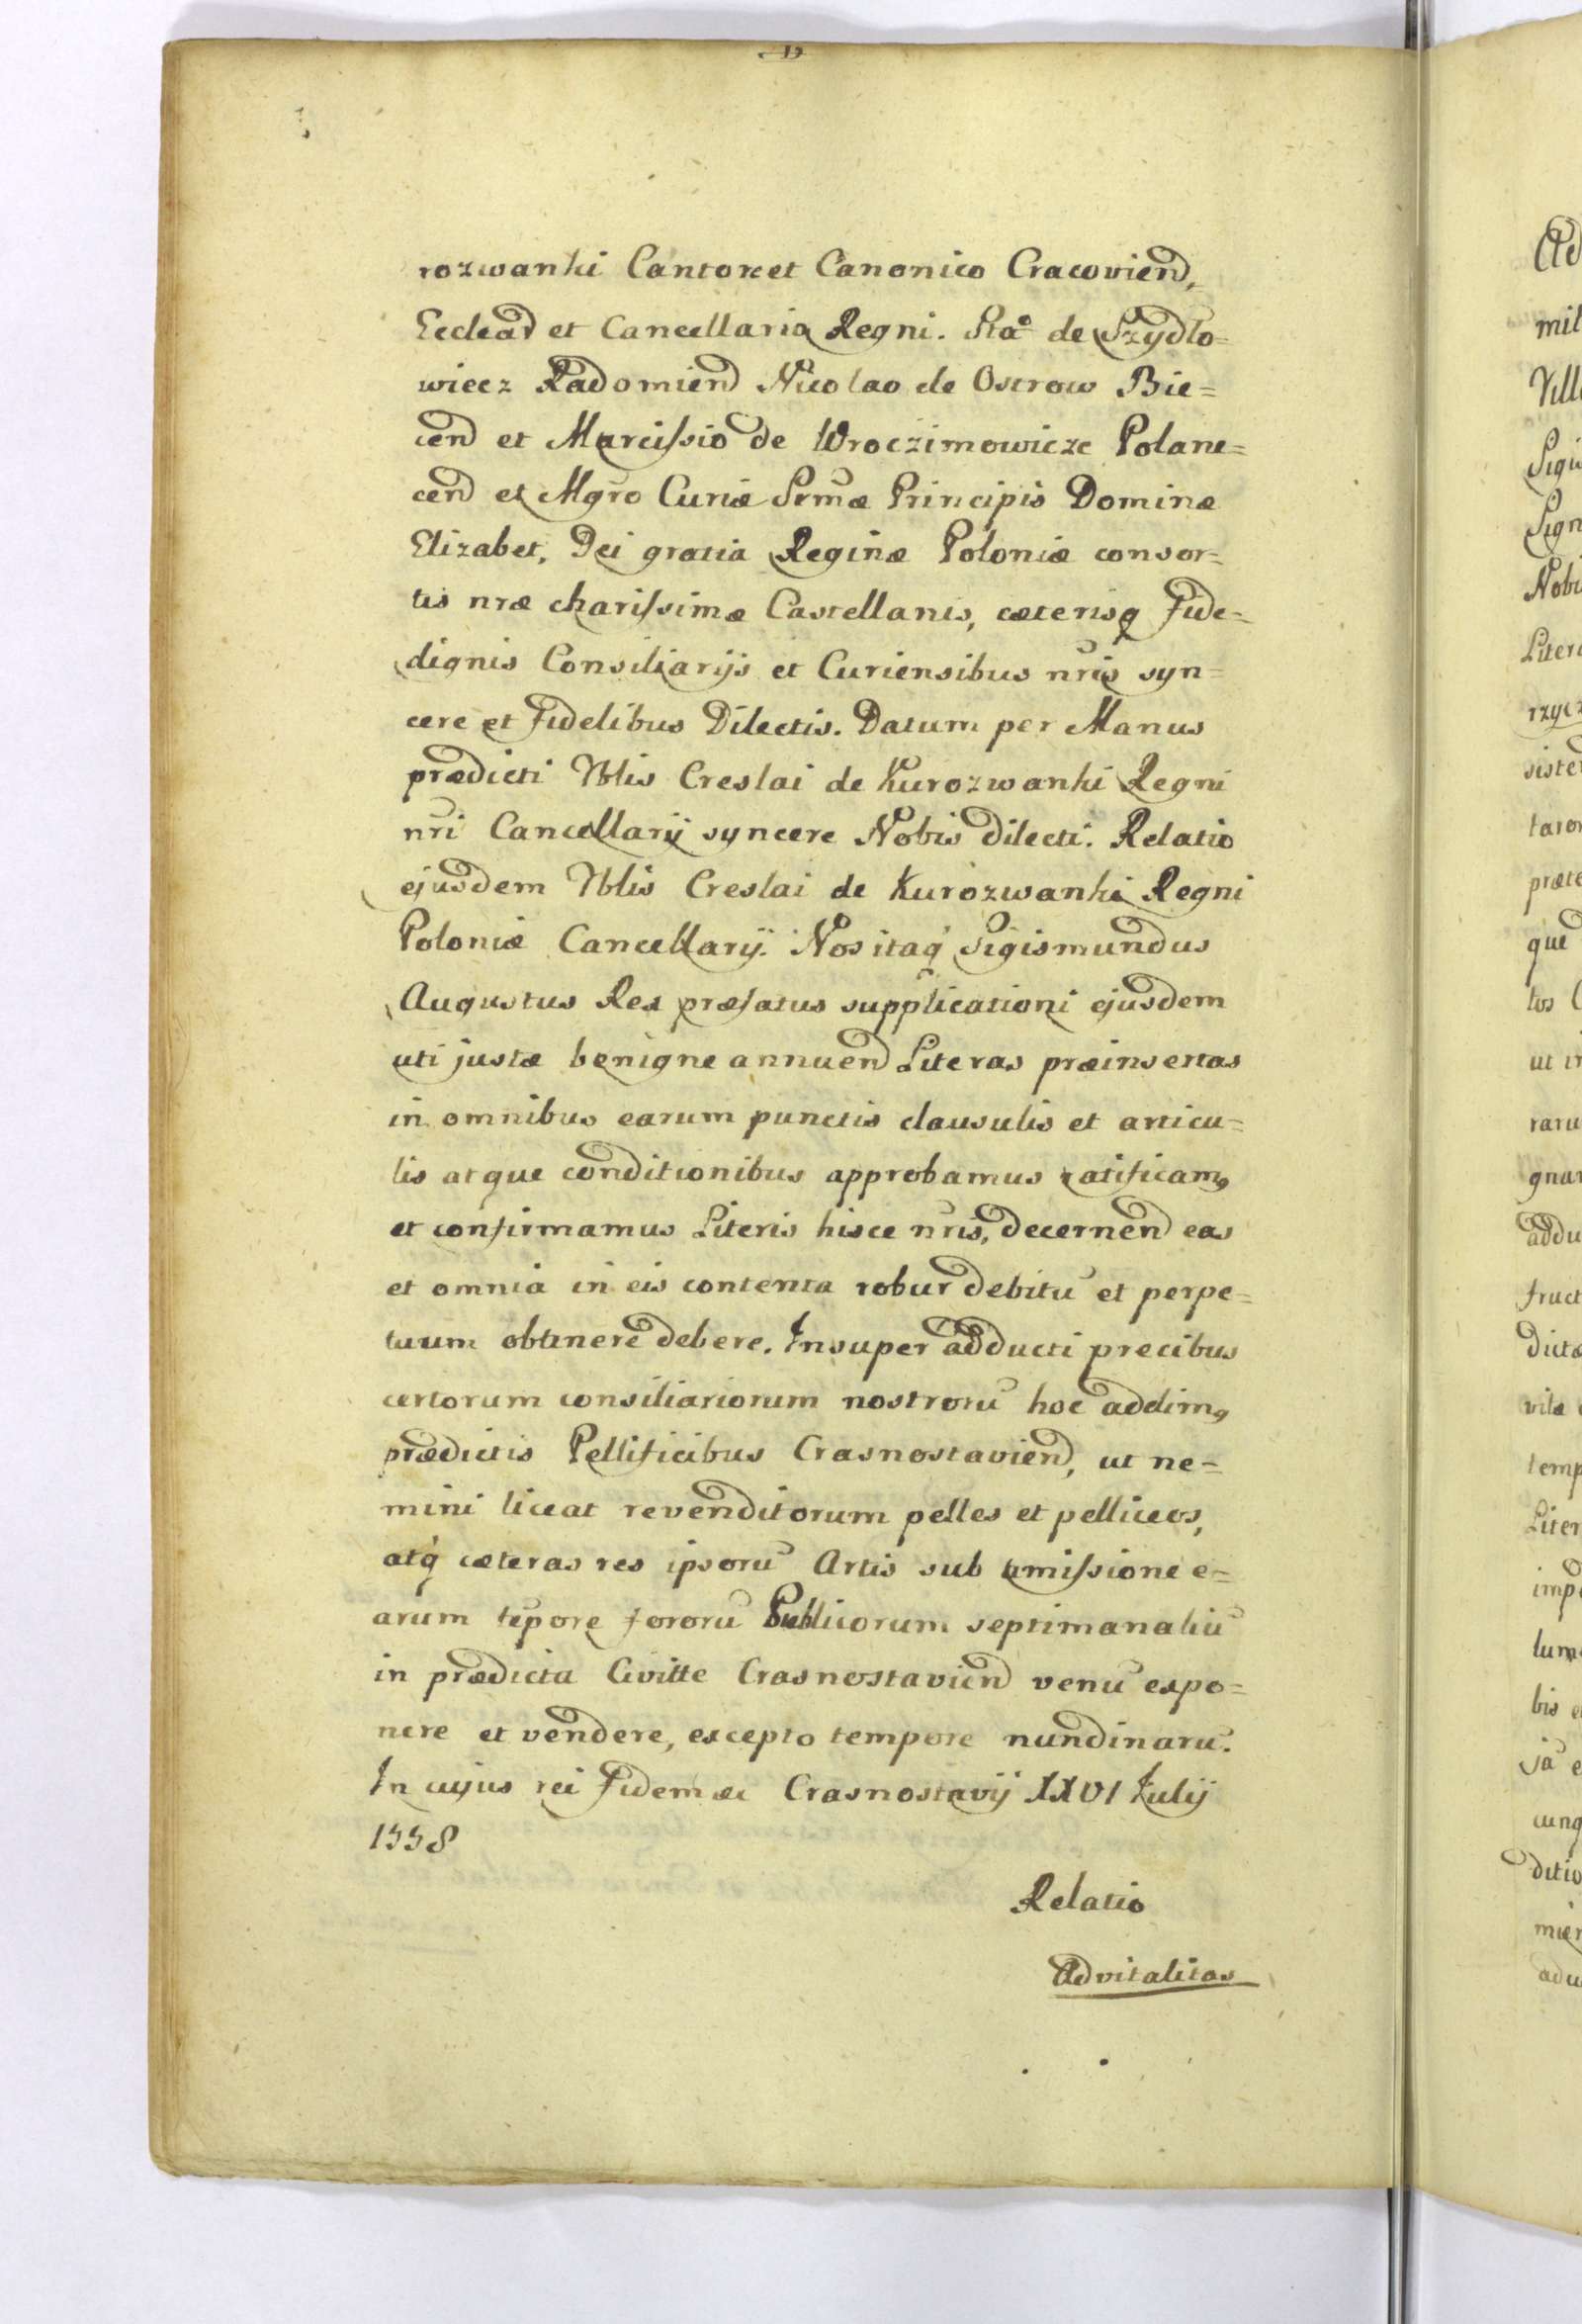 rozwanki Cantore et Canonico Cracovien,
Ecclear et Cancellaria Regni. Sta° de Szydlo=
wiecz Radomien Nicolao de Ostrow Bie=
cen et Marcissio de Wroczimowicze Polane=
cen et Mgro Curiæ Srmæ Principis Dominæ
Elizabet, Dei gratia Reginæ Poloniæ consor=
tis nræ charissimæ Castellanis, cæterisq Fide=
dignis Consiliarijs et Curiensibus nris syn=
cere et Fidelibus Dilectis. Datum per Manus
prædicti Mblis Creslai de Kurozwanki Regni
nri Cancellarij syncere Nobis dilecti. Relatio
ejusdem Mblis Creslai de Kurozwanki Regni
Poloniæ Cancellarij. Nos itaq Sigismundus
Augustus Rex præfatus supplicationi ejusdem
uti justæ benigne annuen Literas præinsertas
in omnibus earum punctis clausulis et articu=
lis atque conditionibus approbamus ratificam9
et confirmamus Literis hisce nris, decernen eas
et omnia in eis contenta robur debitu et perpe=
tuum obtinere debere. Insuper adducti precibus
certorum consiliariorum nostroru hoc addim9
prædictis Pellificibus Crasnostavien, ut ne=
mini liceat revenditorum pelles et pelliceos,
atq cæteras res ipsoru Artis sub amissione e=
arum tepore fororu Publicorum septimanaliu
in prædicta Civitte Crasnostavien venu expo=
nere et vendere, excepto tempore nundinaru.
In cujus rei Fidem etc Crasnostavij XXVI Julij
1558
Relatio
Advitalitas
Ad
mil
Vill
Sigi
Sign
Nobi
Liter
rzycz
siste
taro
præte
que
los
ut i
raru
gna
addu
fruct
dictæ
vitæ
temp
Liter
imp
lum
bis e
ja e
cunq
ditio
mie
adu